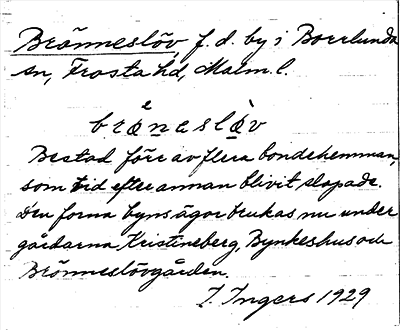 Brönneslöv, f. d. by i Borrlunda
sn, Frosta hd, Malm. l.
brөneslöv
Bestod förr av flera bondehemman,
som tid efter annan blivit slopade.
Den forna byns ägor brukas nu under
gårdarna Kristineberg, Bynkeshus och
Brönneslövgården.
I. Ingers 1929